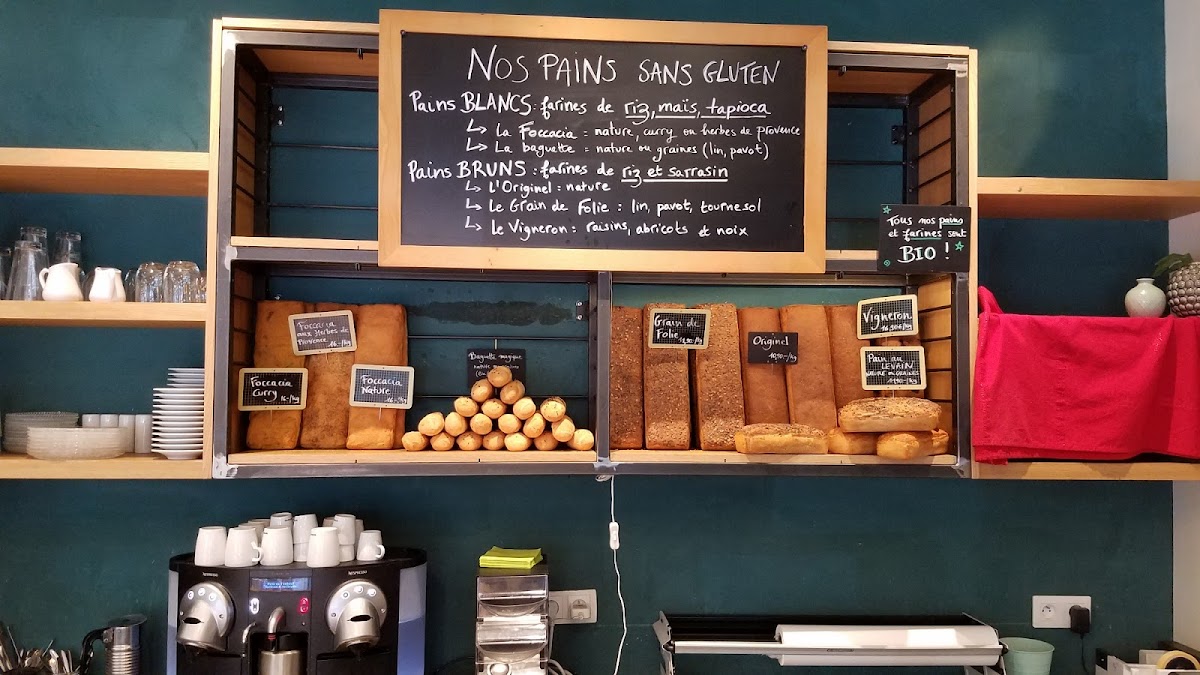 NOS PAINS SANS GLUTEN
Pains BLANCS : farines de riz, maïs, tapioca
↳ La Foccacia = nature, curry ou herbes de provence
↳ La baguette = nature ou graines (lin, pavot)
Pains BRUNS : farines de riz et sarrasin
↳ L'Originel = nature
↳ Le Grain de Folie : lin, pavot, tournesol
↳ Le Vigneron : raisins, abricots et noix
Tous nos pains
et farines sont
BIO !
Foccacia
aux Herbes de
Provence 16.-/kg
Foccacia
Curry 16-/kg
Foccacia
Nature 16.-/kg
Baguette
Grain de
Folie
Originel
Vigneron
Pain au
LEVAIN
NESPRESSO
NESPRESSO